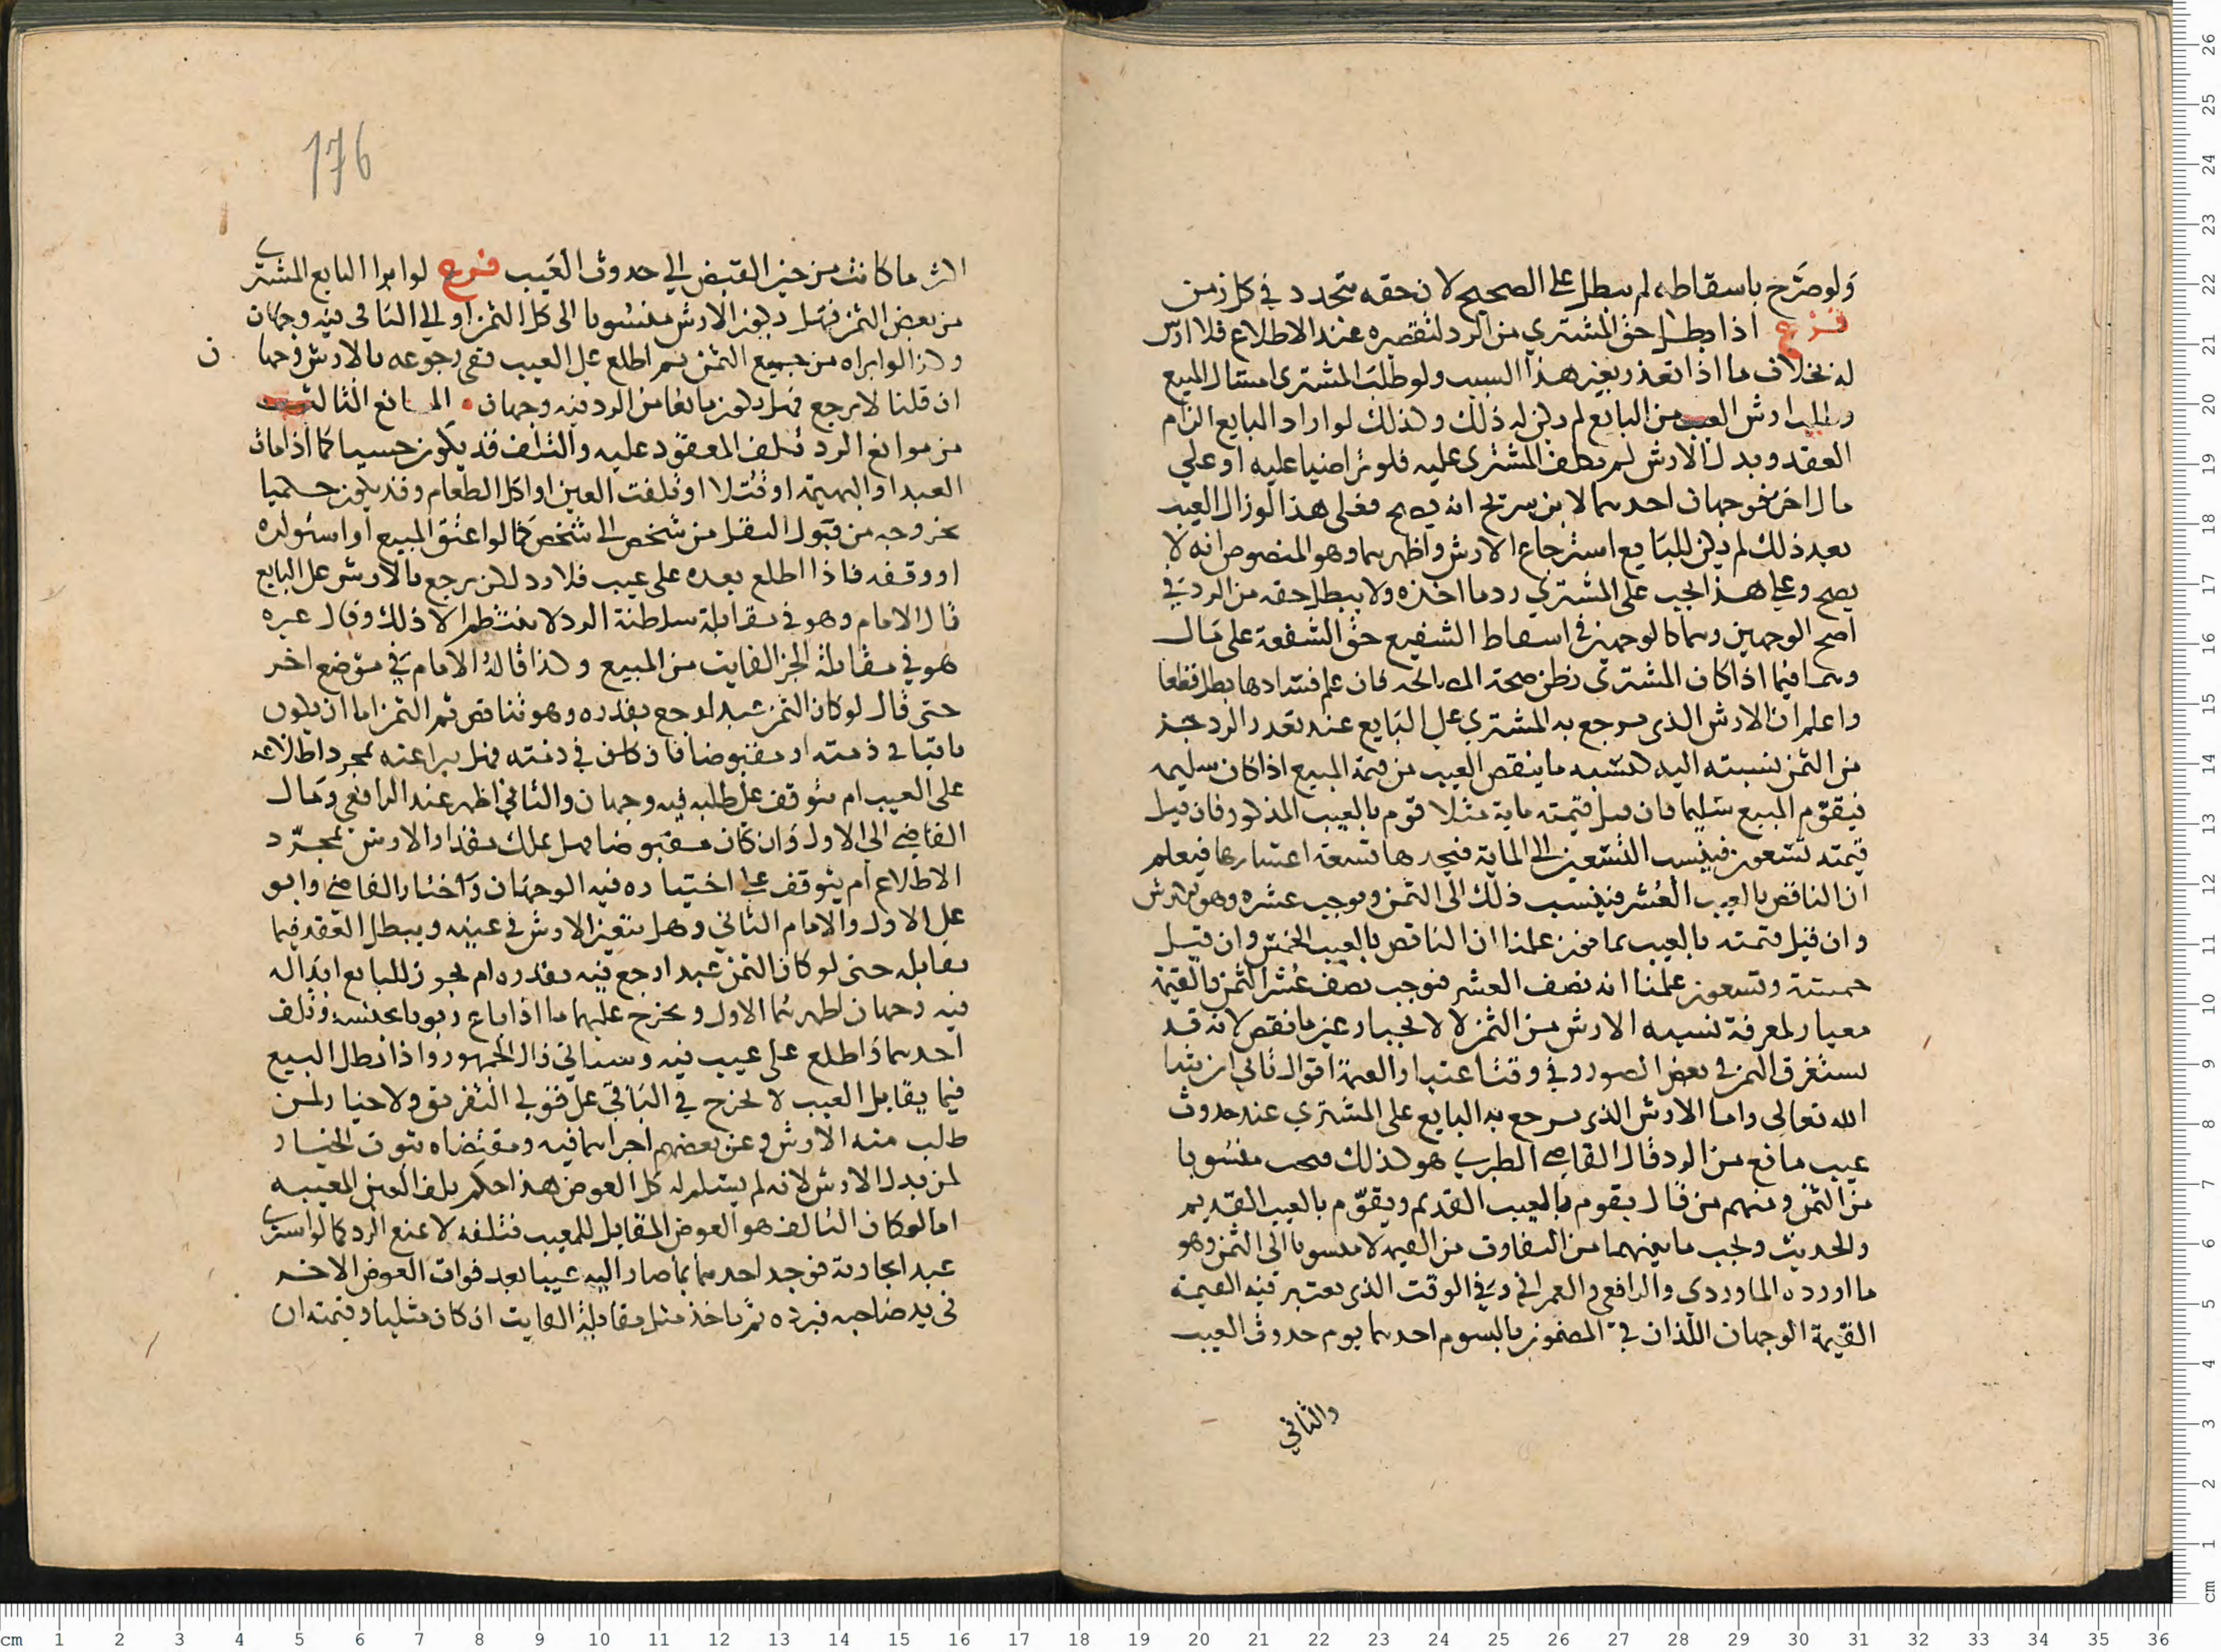 ولو صرح باسقاطه لم يبطل على الصحيح لان حقه يتجدد في كل زمن
فرع اذا بطل حق المشتري من الرد لتقصيره عند الاطلاع فلا ارش
له بخلاف ما اذا تعذر بغير هذا السبب ولو طلب المشتري امساك المبيع
وطلب ارش العيب من البايع لم يكن له ذلك وكذلك لو اراد البايع الزام
العقد وبدل الارش لم يكلف المشتري عليه فلو تراضيا عليه او على
مال اخر فوجهان احدهما لابن سريج انه يصح فعلى هذا لو زال العيب
بعد ذلك لم يكن للبايع استرجاع الارش واظهرهما وهو المنصوص انه لا
يصح وعلى هذا يجب على المشتري رد ما اخذه ولا يبطل حقه من الرد في
اصح الوجهين وهما كالوجهين في اسقاط الشفيع حق الشفعة على مال
وهما فيما اذا كان المشتري يظن صحة المصالحة فان علم فسادها بطل قطعا
واعلم ان الارش الذي يرجع به المشتري على البايع عند تعذر الرد جزء
من الثمن نسبته اليه كنسبة ما ينقص العيب من قيمة المبيع اذا كان سليما
فيقوم المبيع سليما فان قيل قيمته ماية مثلا قوم بالعيب المذكور فان قيل
قيمته تسعون فينسب التسعين الى الماية فيجدها تسعة اعشارها فيعلم
ان الناقص بالعيب العشر فينسب ذلك الى الثمن ويوجب عشره وهو الارش
وان قيل قيمته بالعيب ثمانون علمنا ان الناقص بالعيب الخمس وان قيل
خمسة وتسعون علمنا انه نصف العشر فيوجب نصف عشر الثمن فالقيمة
معيار لمعرفة نسبة الارش من الثمن لا لايجاد عين ما نقص لانه قد
يستغرق الثمن في بعض الصور وفي وقت اعتبار القيمة اقوال تاتي ان شا
الله تعالى واما الارش الذي يرجع به البايع على المشتري عند حدوث
عيب مانع من الرد قال القاضي الطبري هو كذلك فيجب منسوبا
من الثمن ومنهم من قال يقوم بالعيب القديم ويقوم بالعيب القديم
والحديث ويجب ما بينهما من التفاوت من القيمة لا منسوبا الى الثمن وهو
ما اورده الماوردي والرافعي والعمراني وفي الوقت الذي يعتبر فيه القيمة
القيمة الوجهان اللذان في المضمون بالسوم احدهما يوم حدوث العيب
والثاني
176
اكثر ما كانت من حين القبض الى حدوث العيب فرع لو ابرا البايع المشتري
من بعض الثمن فهل يكون الارش منسوبا الى كل الثمن او الى الباقي فيه وجهان
وكذا لو ابراه من جميع الثمن ثم اطلع على العيب ففي رجوعه بالارش وجهان
ان قلنا لا يرجع فهل يكون مانعا من الرد فيه وجهان المانع الثالث
من موانع الرد تلف المعقود عليه والتلف قد يكون حسيا كما اذا مات
العبد او البهيمة او قتلا او تلفت العين او اكل الطعام وقد يكون حكميا
بخروجه من قبول النقل من شخص الى شخص كما لو اعتق المبيع او استولده
او وقفه فاذا اطلع بعده على عيب فلا رد لكن يرجع بالارش على البايع
قال الامام وهو في مقابلة سلطنة الرد لا ينتظم الا ذلك وقال غيره
هو في مقابلة الجز الفايت من المبيع وكذا قاله الامام في موضع اخر
حتى قال لو كان الثمن عبدا رجع بقدره وهو تناقص ثم الثمن اما ان يكون
باقيا في ذمته او مقبوضا فان كان في ذمته فهل يبرا عنه بمجرد اطلاعه
على العيب ام يتوقف على طلبه فيه وجهان والثاني اظهر عند الرافعي ومال
القاضي الى الاول وان كان مقبوضا فهل يملك مقدار الارش بمجرد
الاطلاع ام يتوقف على اختياره فيه الوجهان واختار القاضي وابو
علي الاول والامام الثاني وهل يتعين الارش في عينه ويبطل العقد فيما
يقابله حتى لو كان الثمن عبدا رجع فيه بقدره ام يجوز للبايع ابداله
فيه وجهان اظهرهما الاول ويخرج عليهما ما اذا باع ربويا بجنسه وتلف
احدهما فاطلع على عيب فيه وسياتي قال الجمهور واذا بطل البيع
فيما يقابل العيب لا يخرج في الباقي على قولي التفريق ولا خيار لمن
طلب منه الارش وعن بعضهم اجراهما فيه ومقتضاه ثبوت الخيار
لمن بدل الارش لانه لم يسلم له كل العوض هذا حكم تلف العين المعيبة
اما لو كان التالف هو العوض المقابل للمعيب فتلفه لا يمنع الرد كما لو اشترى
عبدا بجارية فوجد احدهما بما صار اليه عيبا بعد فوات العوض الاخر
في يد صاحبه فيرده ثم ياخذ مثل مقابلة الفايت ان كان مثليا وقيمته ان